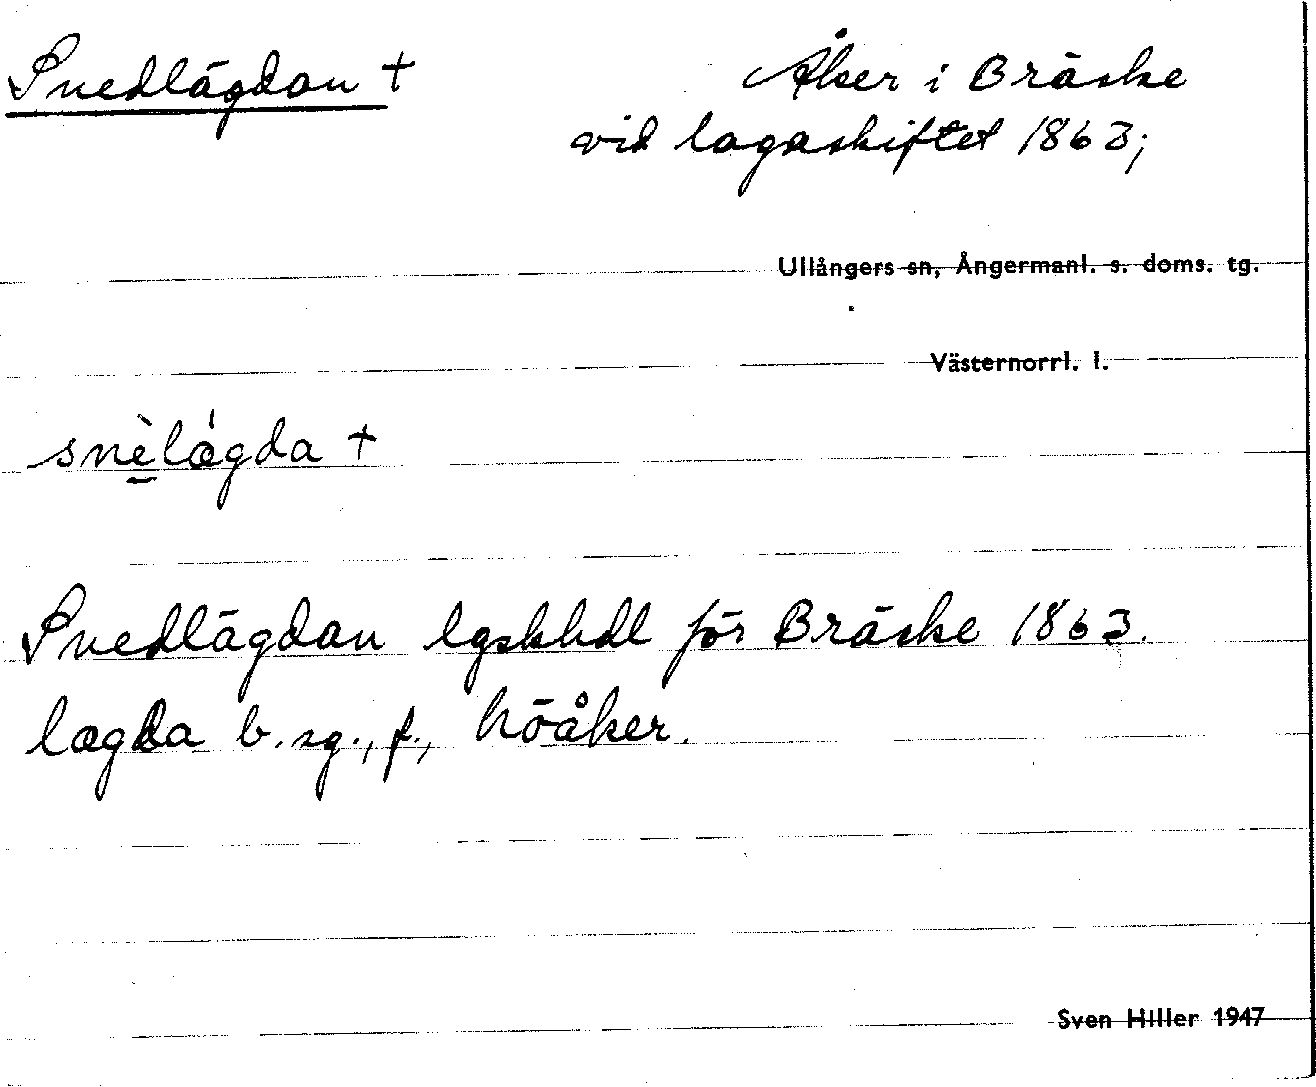 Snedlägdan + Åker i Bräske
vid lagaskiftet 1863;
Ullångers sn, Ångermanl. s. doms. tg.
Västernorrl. l.
snè̱lǽgda +
Snedlägdan lgskhdl för Bräske 1863.
lægda b. sg., f., höåker.
Sven Hiller 1947